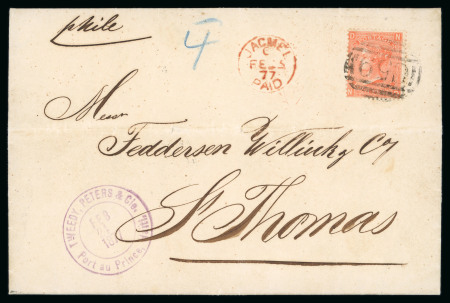 phile
4
JACMEL
C
FE 5
77
PAID
Messr
Feddersen Willink & Co
St Thomas
TWEEDY, PETERS & Cie.
FEB
Port au Prince,